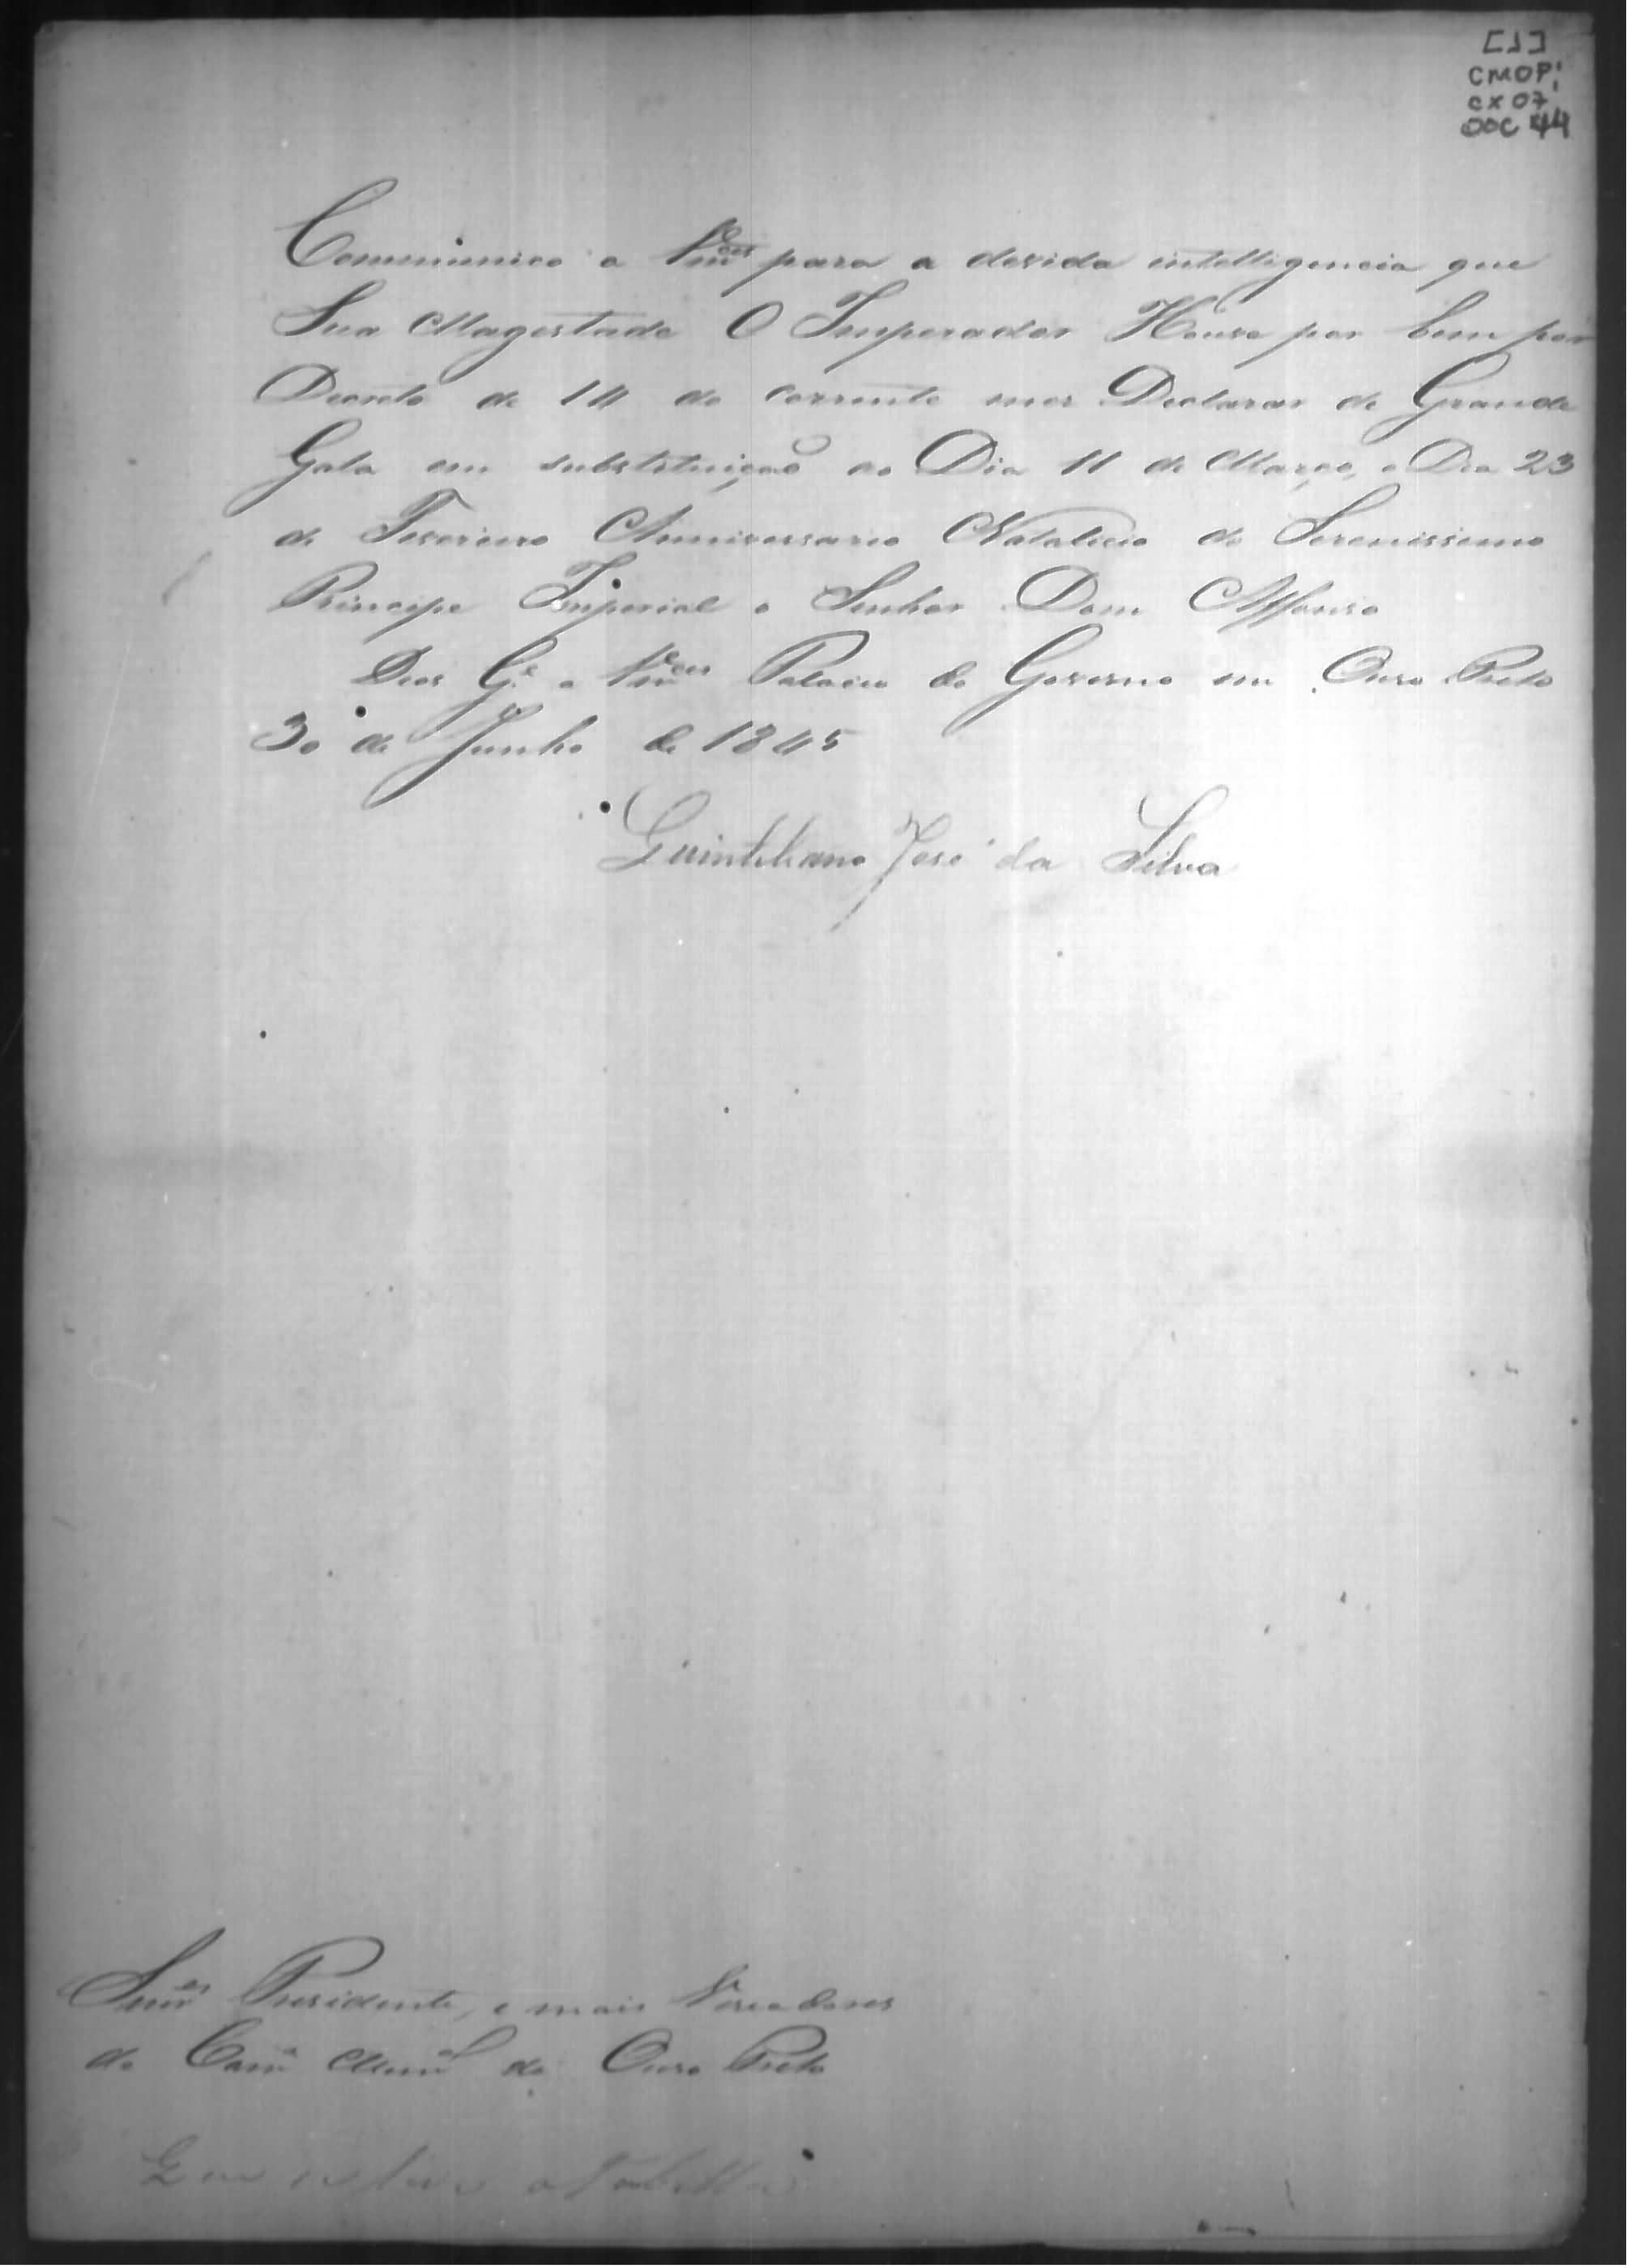 [1]
CMOP;
CX 07,
DOC 44
Communico a Vm.ces para a devida intelligencia que
Sua Magestade O Imperador Houve por bem por
Decreto de 14 do corrente mez Declarar de Grande
Gala em substituiçaõ ao Dia 11 de Março, o Dia 23
de Fevereiro Anniversario Natalicio do Serenissimo
Principe Imperial o Senhor Dom Affonso
Deos G.e a Vm.ces Palacio do Governo em Ouro Preto
30 de Junho de 1845
Quintiliano José da Silva
Snr.es Presidente, e mais Vereadores
da Cam.a Mun.al do Ouro Preto